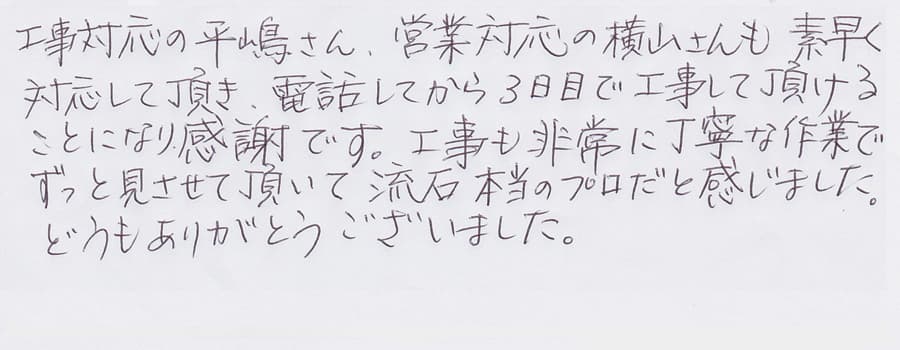 工事対応の平嶋さん、営業対応の横山さんも素早く
対応して頂き、電話してから3日目で工事して頂ける
ことになり感謝です。工事も非常に丁寧な作業で
ずっと見させて頂いて流石本当のプロだと感じました。
どうもありがとうございました。